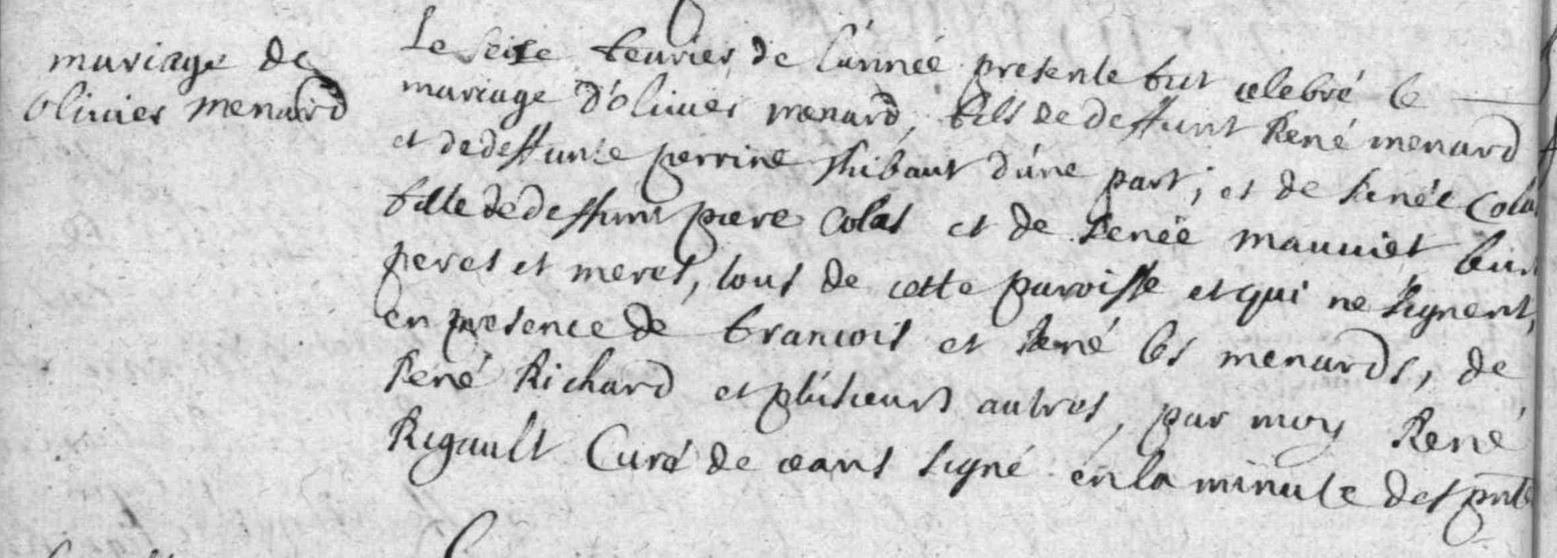 mariage de
olivier menard
Le seise fevrier de l'année presente fut celebré le
mariage d'olivier menard, fils de deffunt René menard
et de deffunte perrine thibaut d'une part, et de Renée Colas
fille de deffunt piere Colas et de Renée mauviet leurs
peres et meres, tous de cette paroisse et qui ne signent,
en presence de francois et René les menards, de
René Richard et plusieurs autres, par moy René
Rigault Curé de ceans signé en la minute des pntes